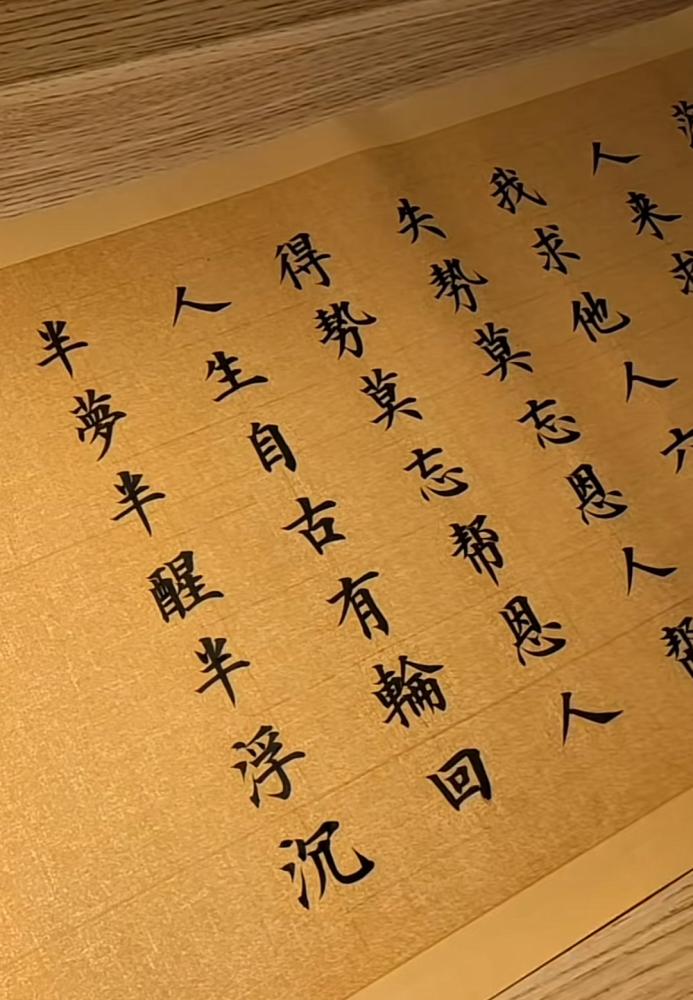 人来求
我求他人六
失勢莫忘恩人帮
得勢莫忘帮恩人
人生自古有輪回
半夢半醒半浮沉